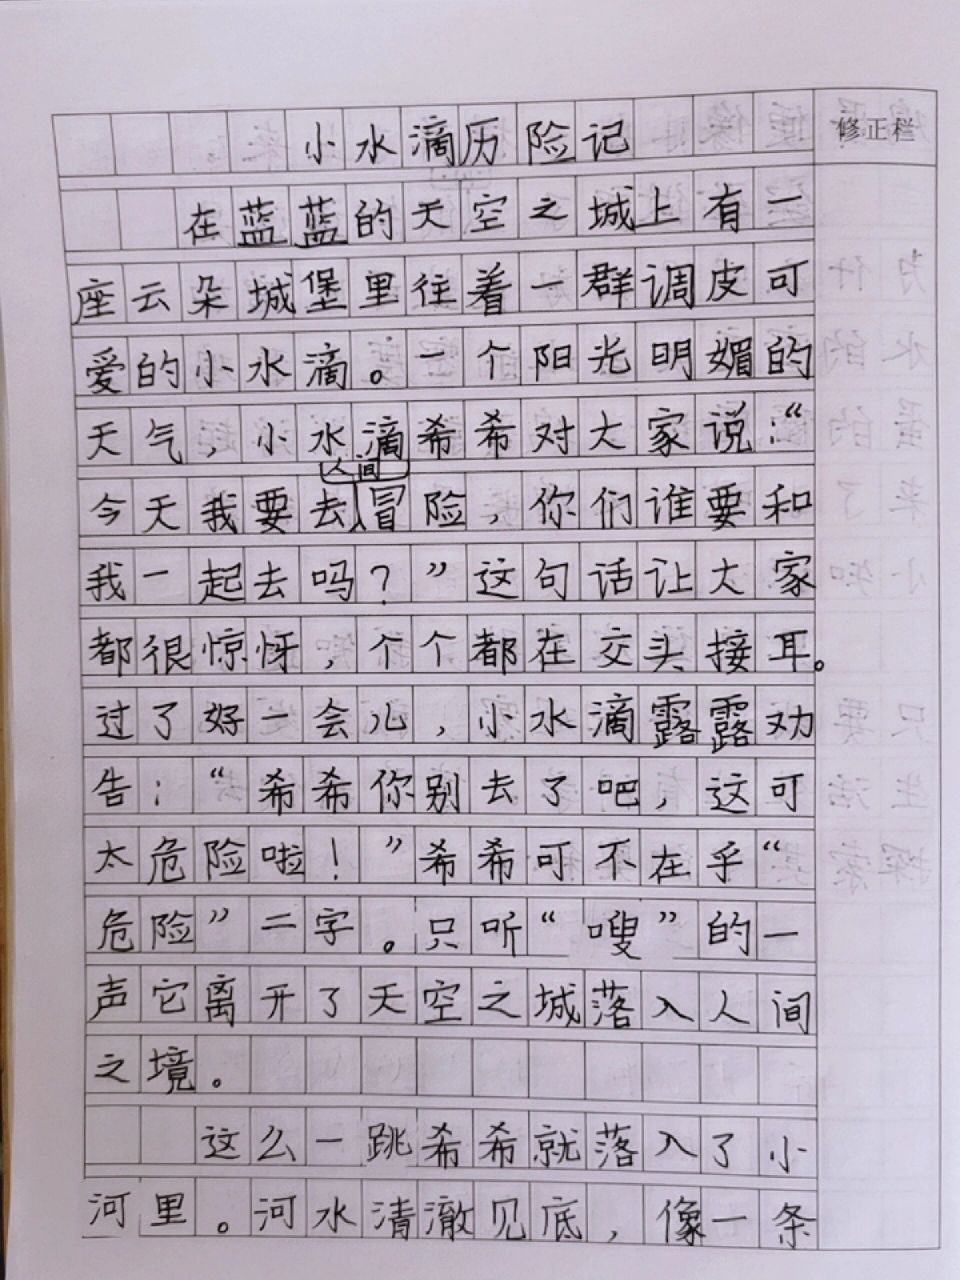 小水滴历险记
修正栏
在蓝蓝的天空之城上有一
座云朵城堡里往着一群调皮可
爱的小水滴。一个阳光明媚的
天气，小水滴希希对大家说：“
人间
今天我要去冒险，你们谁要和
我一起去吗？”这句话让大家
都很惊怀，个个都在交头接耳。
过了好一会儿，小水滴露露劝
告：“希希你别去了吧，这可
太危险啦！”希希可不在乎“
危险”二字。只听“嗖”的一
声它离开了天空之城落入人间
之境。
这么一跳希希就落入了小
河里。河水清澈见底，像一条